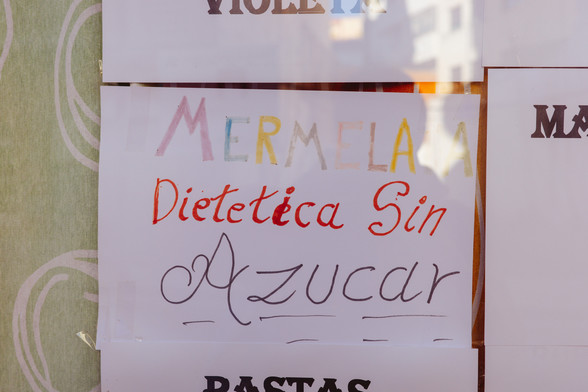 VIOLETA
MERMELADA
Dietetica Sin
Azucar
PASTAS
MA